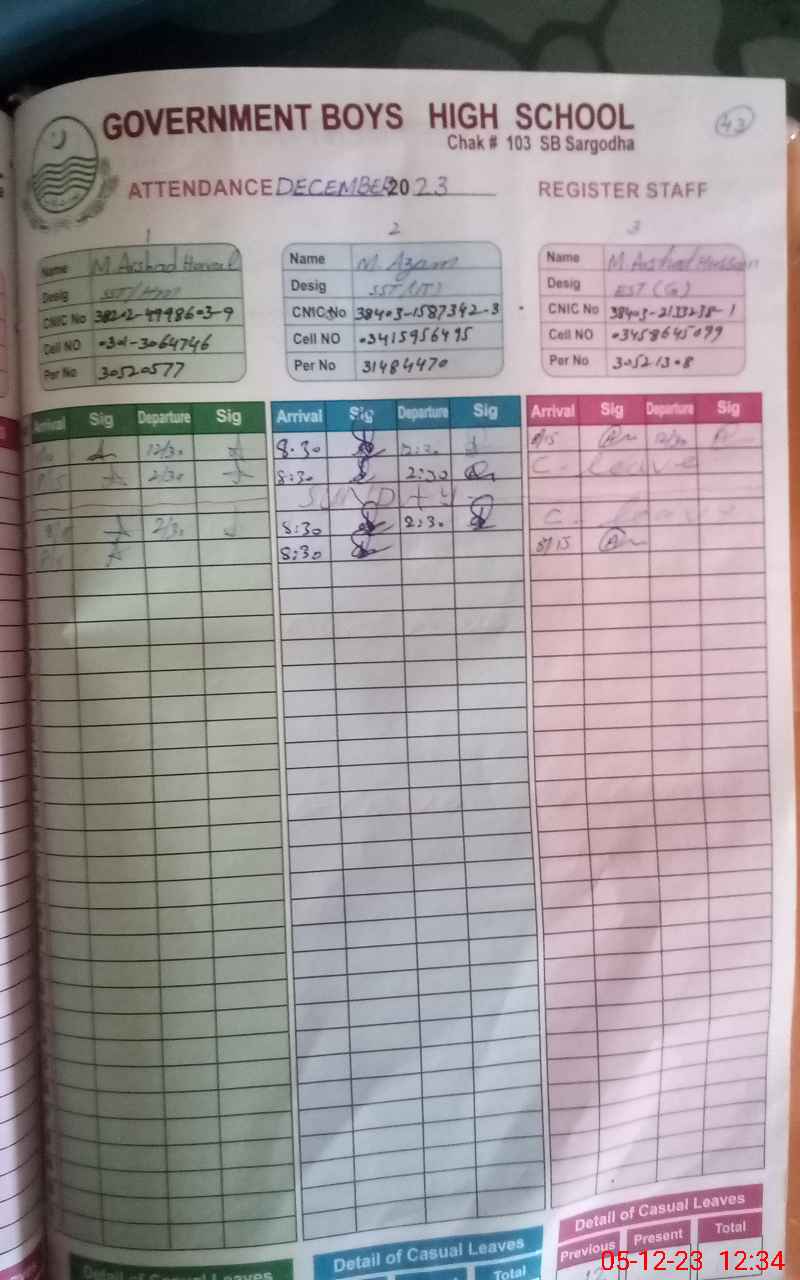 GOVERNMENT BOYS HIGH SCHOOL
43
Chak # 103 SB Sargodha
ATTENDANCE DECEMBER 2023 REGISTER STAFF
1 2 3
Name M. Arshad
Desig
CNIC No 38202-4998603-9
Cell NO 0301-3064746
Per No 30520577
Name M. Azam
Desig SST(IT)
CNIC No 38403-1587342-3
Cell NO 03415956495
Per No 31484470
Name M. Arshad Hussain
Desig EST(G)
CNIC No 38403-2133238-1
Cell NO 03458645099
Per No 30521308
Arrival Sig Departure Sig Arrival Sig Departure Sig Arrival Sig Departure Sig
12/30 8.30 2:30 8/15 12/30
8/15 2/30 8:30 2:30 C. leave
SUNDAY
2/30 8:30 2:30 C. leave
8:30 8/15
Detail of Casual Leaves
Detail of Casual Leaves
Total
Detail of Casual Leaves
Previous Present Total
05-12-23 12:34